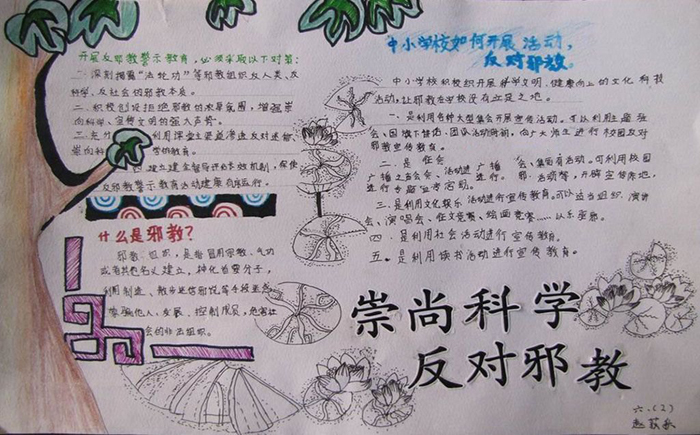 开展反邪教警示教育，必须采取以下对策：
一、深刻揭露“法轮功”等邪教组织反人类、反
科学、反社会的邪教本质。
二、积极创设拒绝邪教的浓厚氛围，增强崇
尚科学、宣传文明的强大声势。
三、充分 利用课堂主渠道渗透反对迷信
崇尚科 学的教育。
四、建立健全督导评估长效机制，保使
反邪教警示教育活动健康有序运行。
什么是邪教？
邪教组织，是指冒用宗教、气功
或者其他名义建立，神化首要分子，
利用制造、散布迷信邪说等手段
他人，发展、控制成员，危害社
会的非法组织。
中小学校如何开展活动，
反对邪教。
中小学校积极组织开展科学文明、健康向上的文化科技
活动，让邪教在学校没有立足之地。
一、是利用各种大型集会开展宣传活动。可以利用主题班
会、国旗下讲话、团队活动时间，向广大师生进行校园反对
邪教宣传教育。
二、是 在会 广播 会、集团有活动。可利用校园
广播之声会会、活动进行。 活动等，开辟宣传阵地，
进行专题
三、是利用文娱乐活动进行宣传教育。可以适当组织、演讲
会、演唱会、征文竞赛、绘画竞赛……
四、是利用社会活动进行宣传教育。
五、是利用读书活动进行宣传教育。
崇尚科学
反对邪教
六.(2)